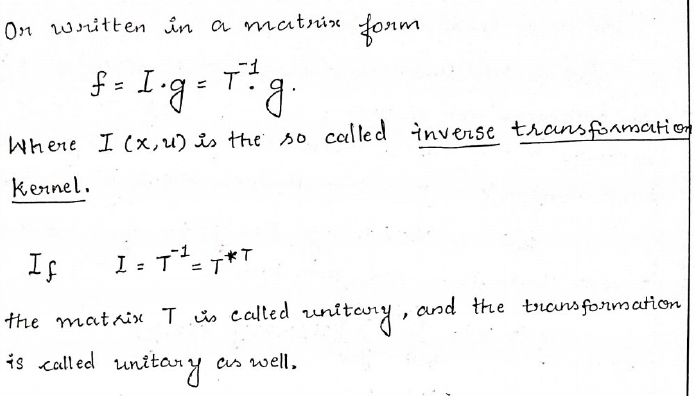 Or written in a matrix form
f = I·g = T⁻¹·g.
Where I (x,u) is the so called inverse transformation
kernel.
If I = T⁻¹ = T*ᵀ
the matrix T is called unitary, and the transformation
is called unitary as well.